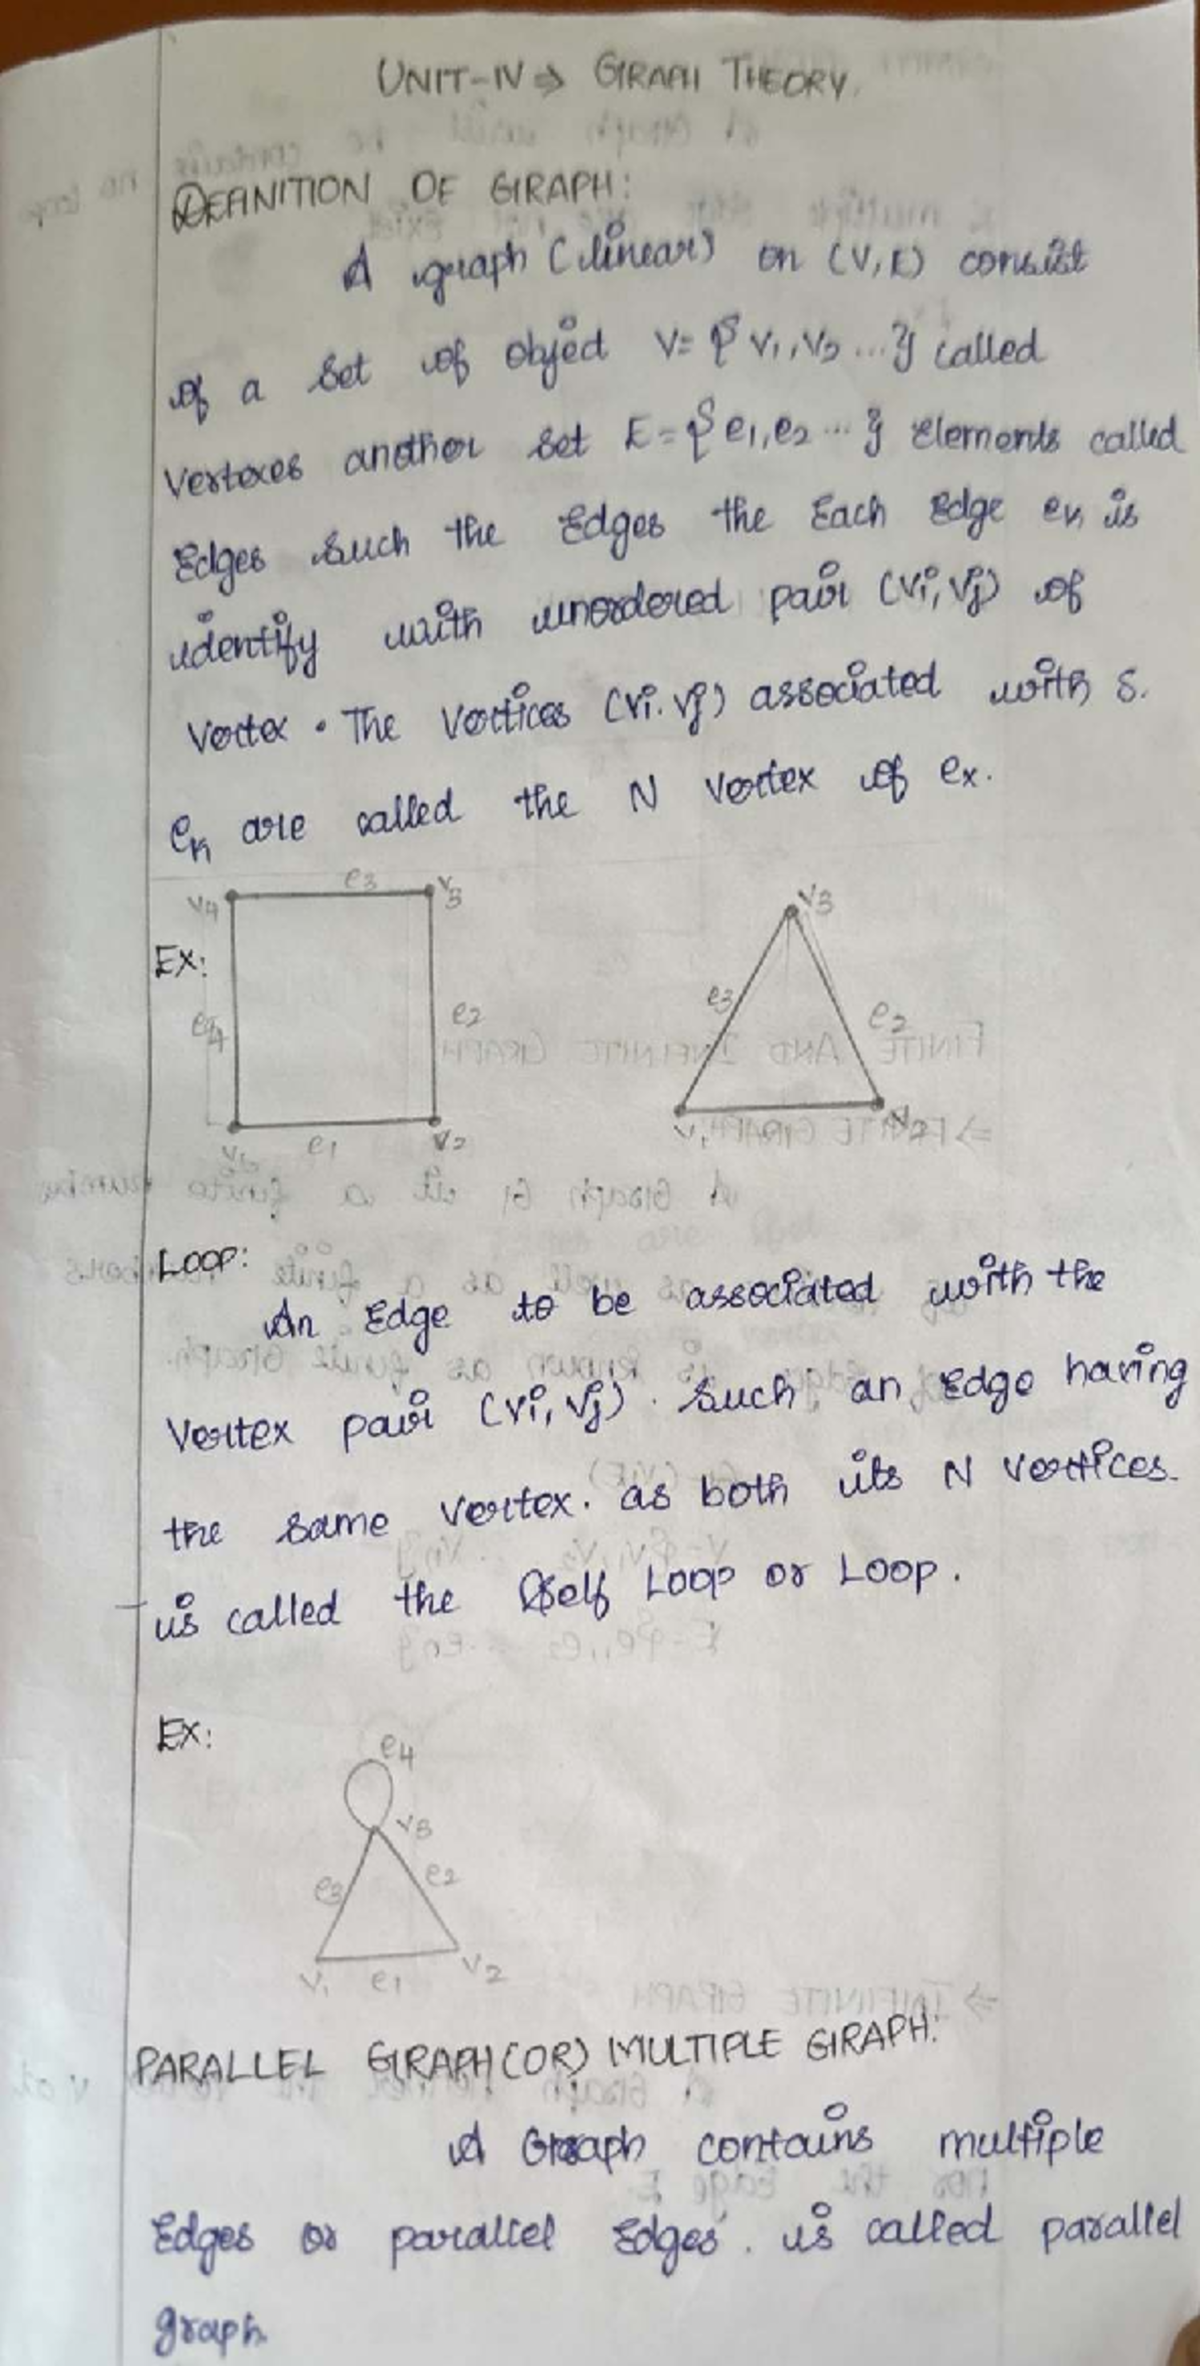 UNIT-IV ⇒ GRAPH THEORY.
DEFINITION OF GRAPH:
A graph (linear) on (V,E) consist
of a set of object V= { V1, V2 ...} called
Vertexes another set E={e1,e2 ...} Elements called
Edges such the Edges the Each Edge ek is
identify with unordered pair (Vi,Vj) of
Vertex. The Vertices (Vi.Vj) associated with s.
ek are called the N Vertex of ex.
Ex:
V4 e3 V3
e4 e2
V1 e1 V2
V3
e3 e2
V1 V2
LOOP:
An Edge to be associated with the
Vertex pair (Vi,Vj). Such an Edge having
the same Vertex. as both its N Vertices.
is called the Self Loop or Loop.
Ex:
e4
V3
e3 e2
V1 e1 V2
PARALLEL GRAPH(OR) MULTIPLE GRAPH:
A Graph contains multiple
Edges or parallel Edges. is called parallel
graph.